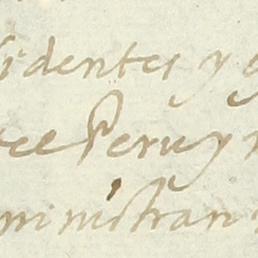 sidentes y o
tee Peru y
ministran